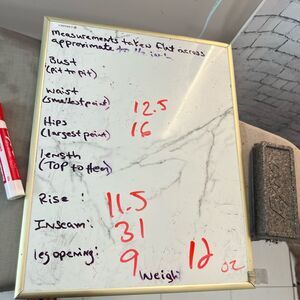 measurements taken flat across
approximate to 1/2 inch
Bust
(pit to pit)
waist
(smallest point) 12.5
Hips 16
(largest point)
length
(TOP to Hem)
Rise: 11.5
Inseam: 31
leg opening: 9
Weigh 12 oz